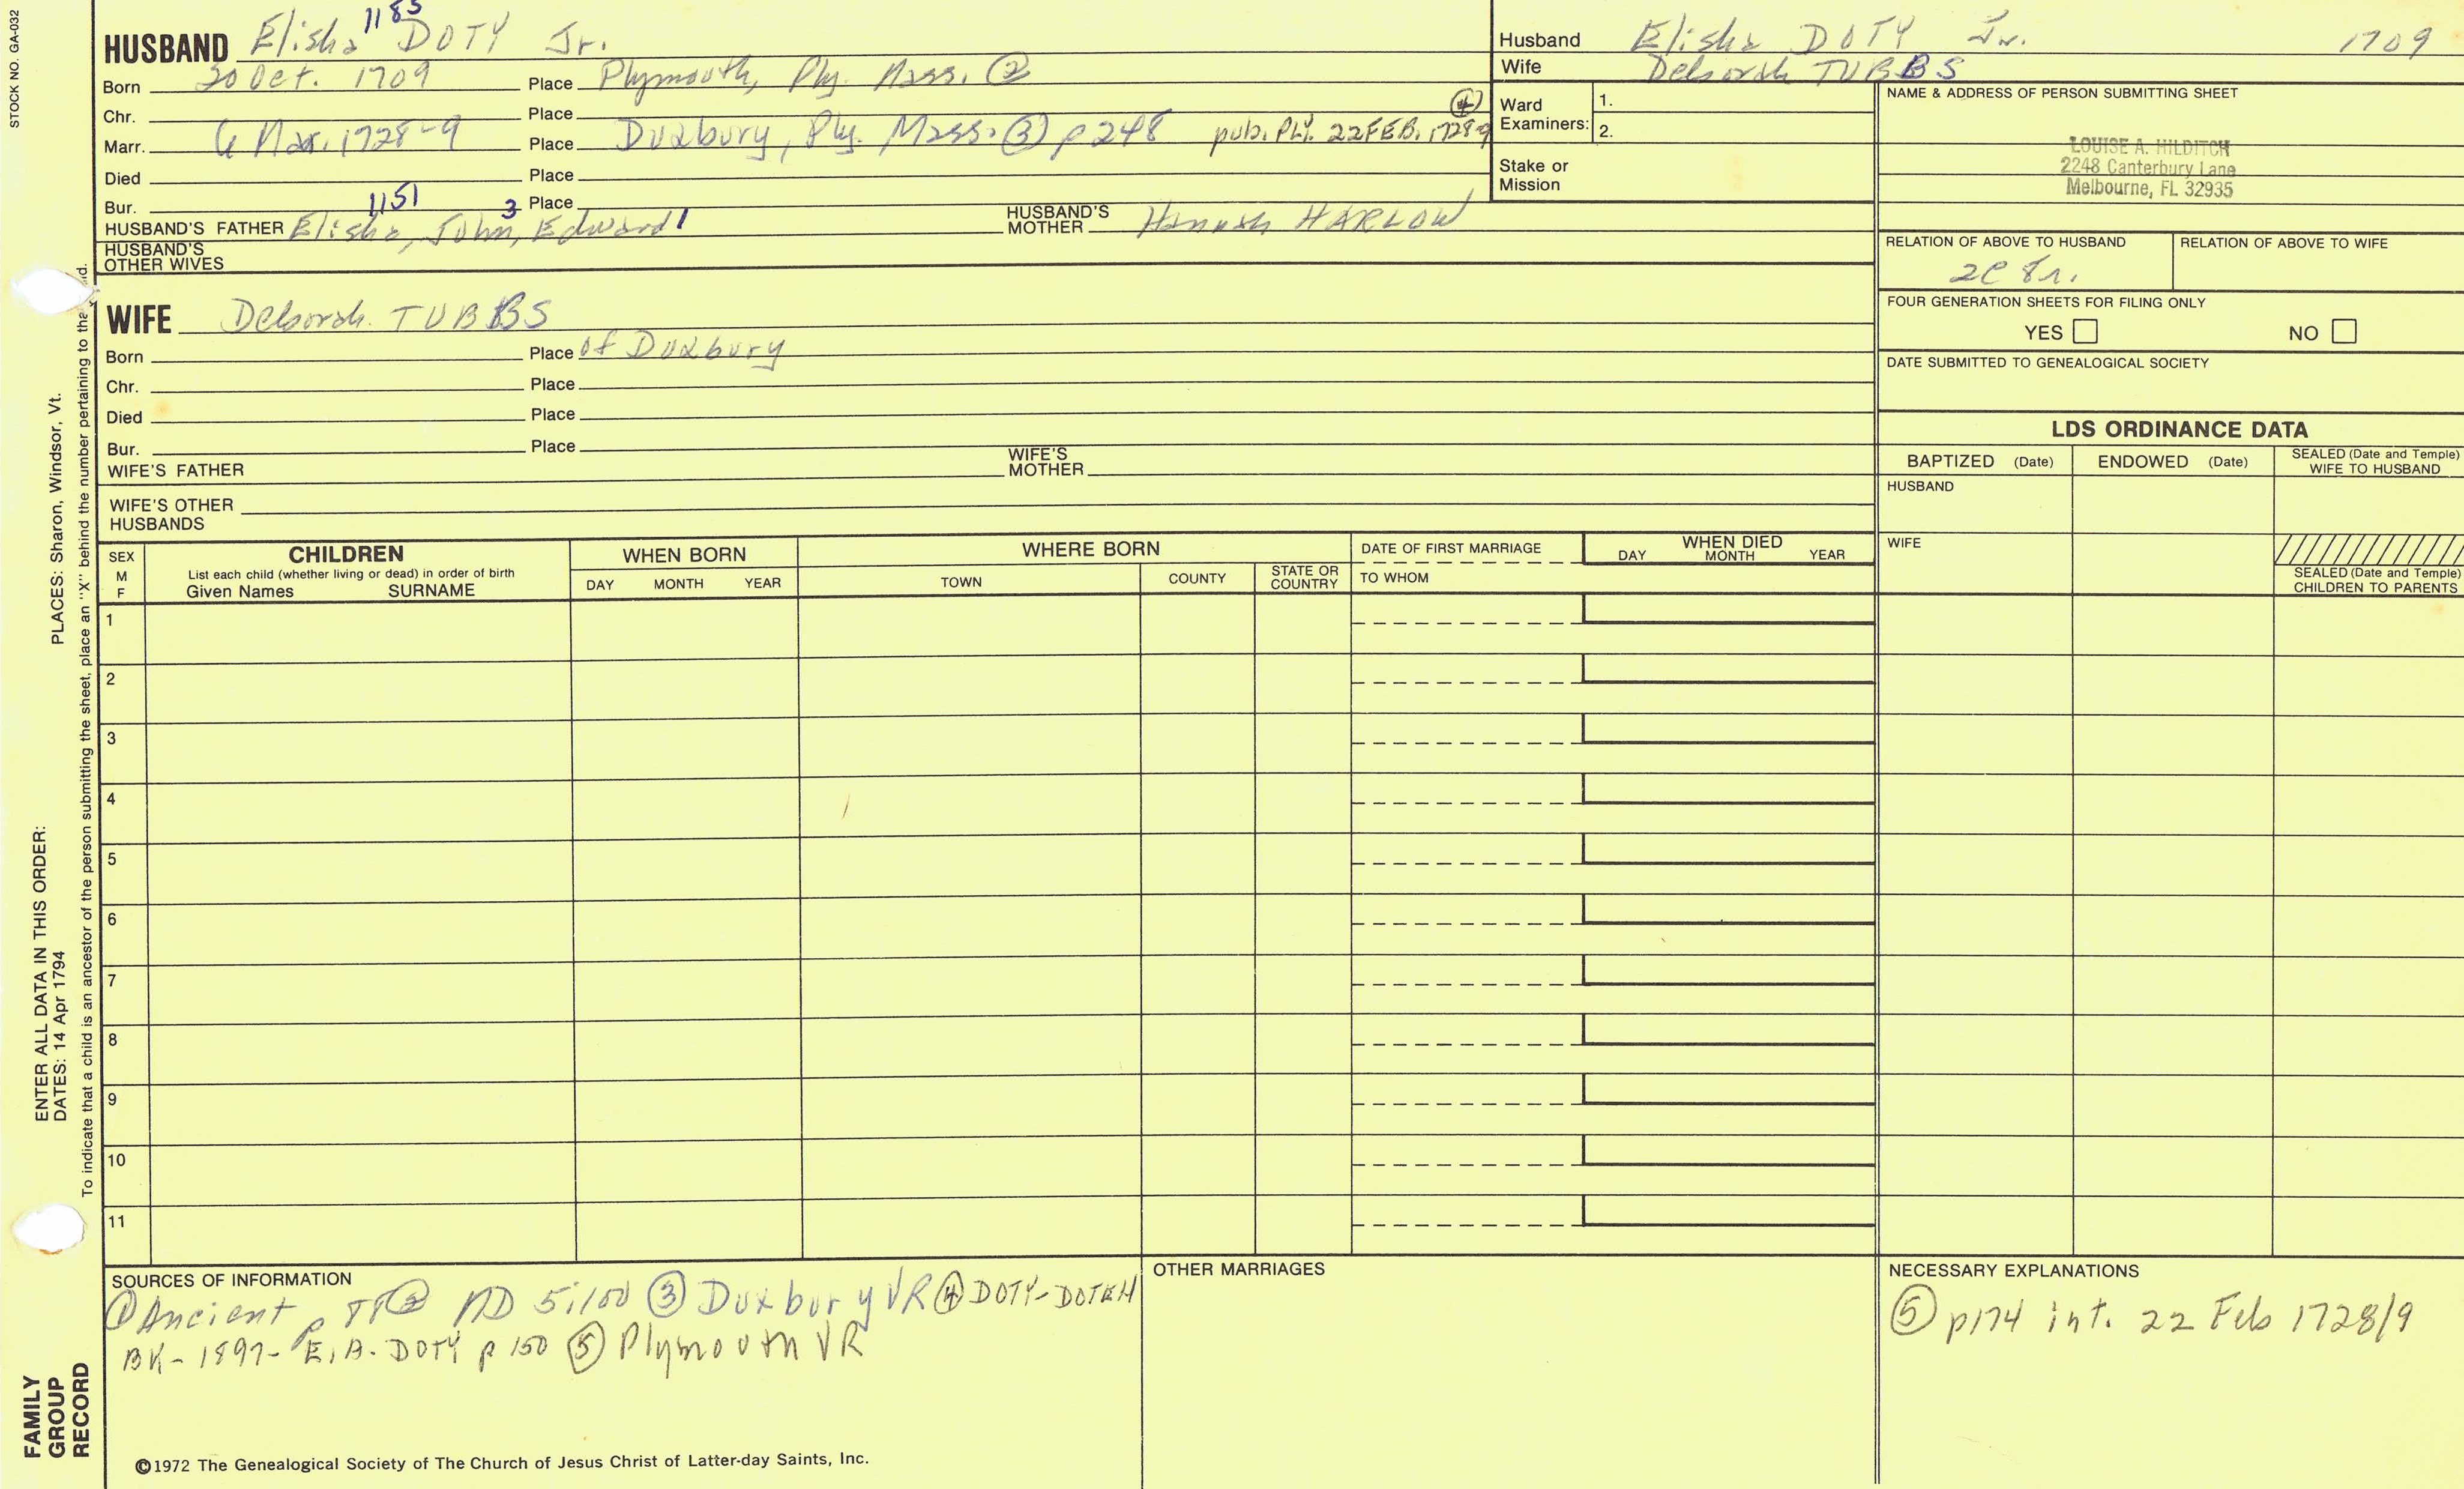 STOCK NO. GA-032
1185
HUSBAND Elisha DOTY Jr.
Born 30 Oct. 1709 Place Plymouth, Ply. Mass. ②
Chr. Place
Marr. 6 Mar. 1728-9 Place Duxbury, Ply. Mass. ③ p 248 pub. PLY. 22 FEB. 1728-9 ④
Died Place
Bur. Place
1151 3
HUSBAND'S FATHER Elisha, John, Edward 1 HUSBAND'S MOTHER Hannah HARLOW
HUSBAND'S OTHER WIVES
WIFE Deborah TUBBS
Born Place of Duxbury
Chr. Place
Died Place
Bur. Place
WIFE'S FATHER WIFE'S MOTHER
WIFE'S OTHER HUSBANDS
Husband Elisha DOTY Jr. 1709
Wife Deborah TUBBS
Ward Examiners: 1.
2.
Stake or Mission
NAME & ADDRESS OF PERSON SUBMITTING SHEET
LOUISE A. HILDITCH
2248 Canterbury Lane
Melbourne, FL 32935
RELATION OF ABOVE TO HUSBAND RELATION OF ABOVE TO WIFE
2C 8r.
FOUR GENERATION SHEETS FOR FILING ONLY
YES NO
DATE SUBMITTED TO GENEALOGICAL SOCIETY
LDS ORDINANCE DATA
BAPTIZED (Date) ENDOWED (Date) SEALED (Date and Temple) WIFE TO HUSBAND
HUSBAND
WIFE
SEALED (Date and Temple) CHILDREN TO PARENTS
SEX M F
CHILDREN
List each child (whether living or dead) in order of birth
Given Names SURNAME
WHEN BORN
DAY MONTH YEAR
WHERE BORN
TOWN COUNTY STATE OR COUNTRY
DATE OF FIRST MARRIAGE
TO WHOM
WHEN DIED
DAY MONTH YEAR
1
2
3
4
5
6
7
8
9
10
11
SOURCES OF INFORMATION
① Ancient p ② MD 5:100 ③ Duxbury VR ④ DOTY-DOTEN
BK-1897- E.A. DOTY p 150 ⑤ Plymouth VR
OTHER MARRIAGES
NECESSARY EXPLANATIONS
⑤ p174 int. 22 Feb 1728/9
©1972 The Genealogical Society of The Church of Jesus Christ of Latter-day Saints, Inc.
FAMILY
GROUP
RECORD
ENTER ALL DATA IN THIS ORDER:
DATES: 14 Apr 1794 PLACES: Sharon, Windsor, Vt.
To indicate that a child is an ancestor of the person submitting the sheet, place an "X" behind the number pertaining to the